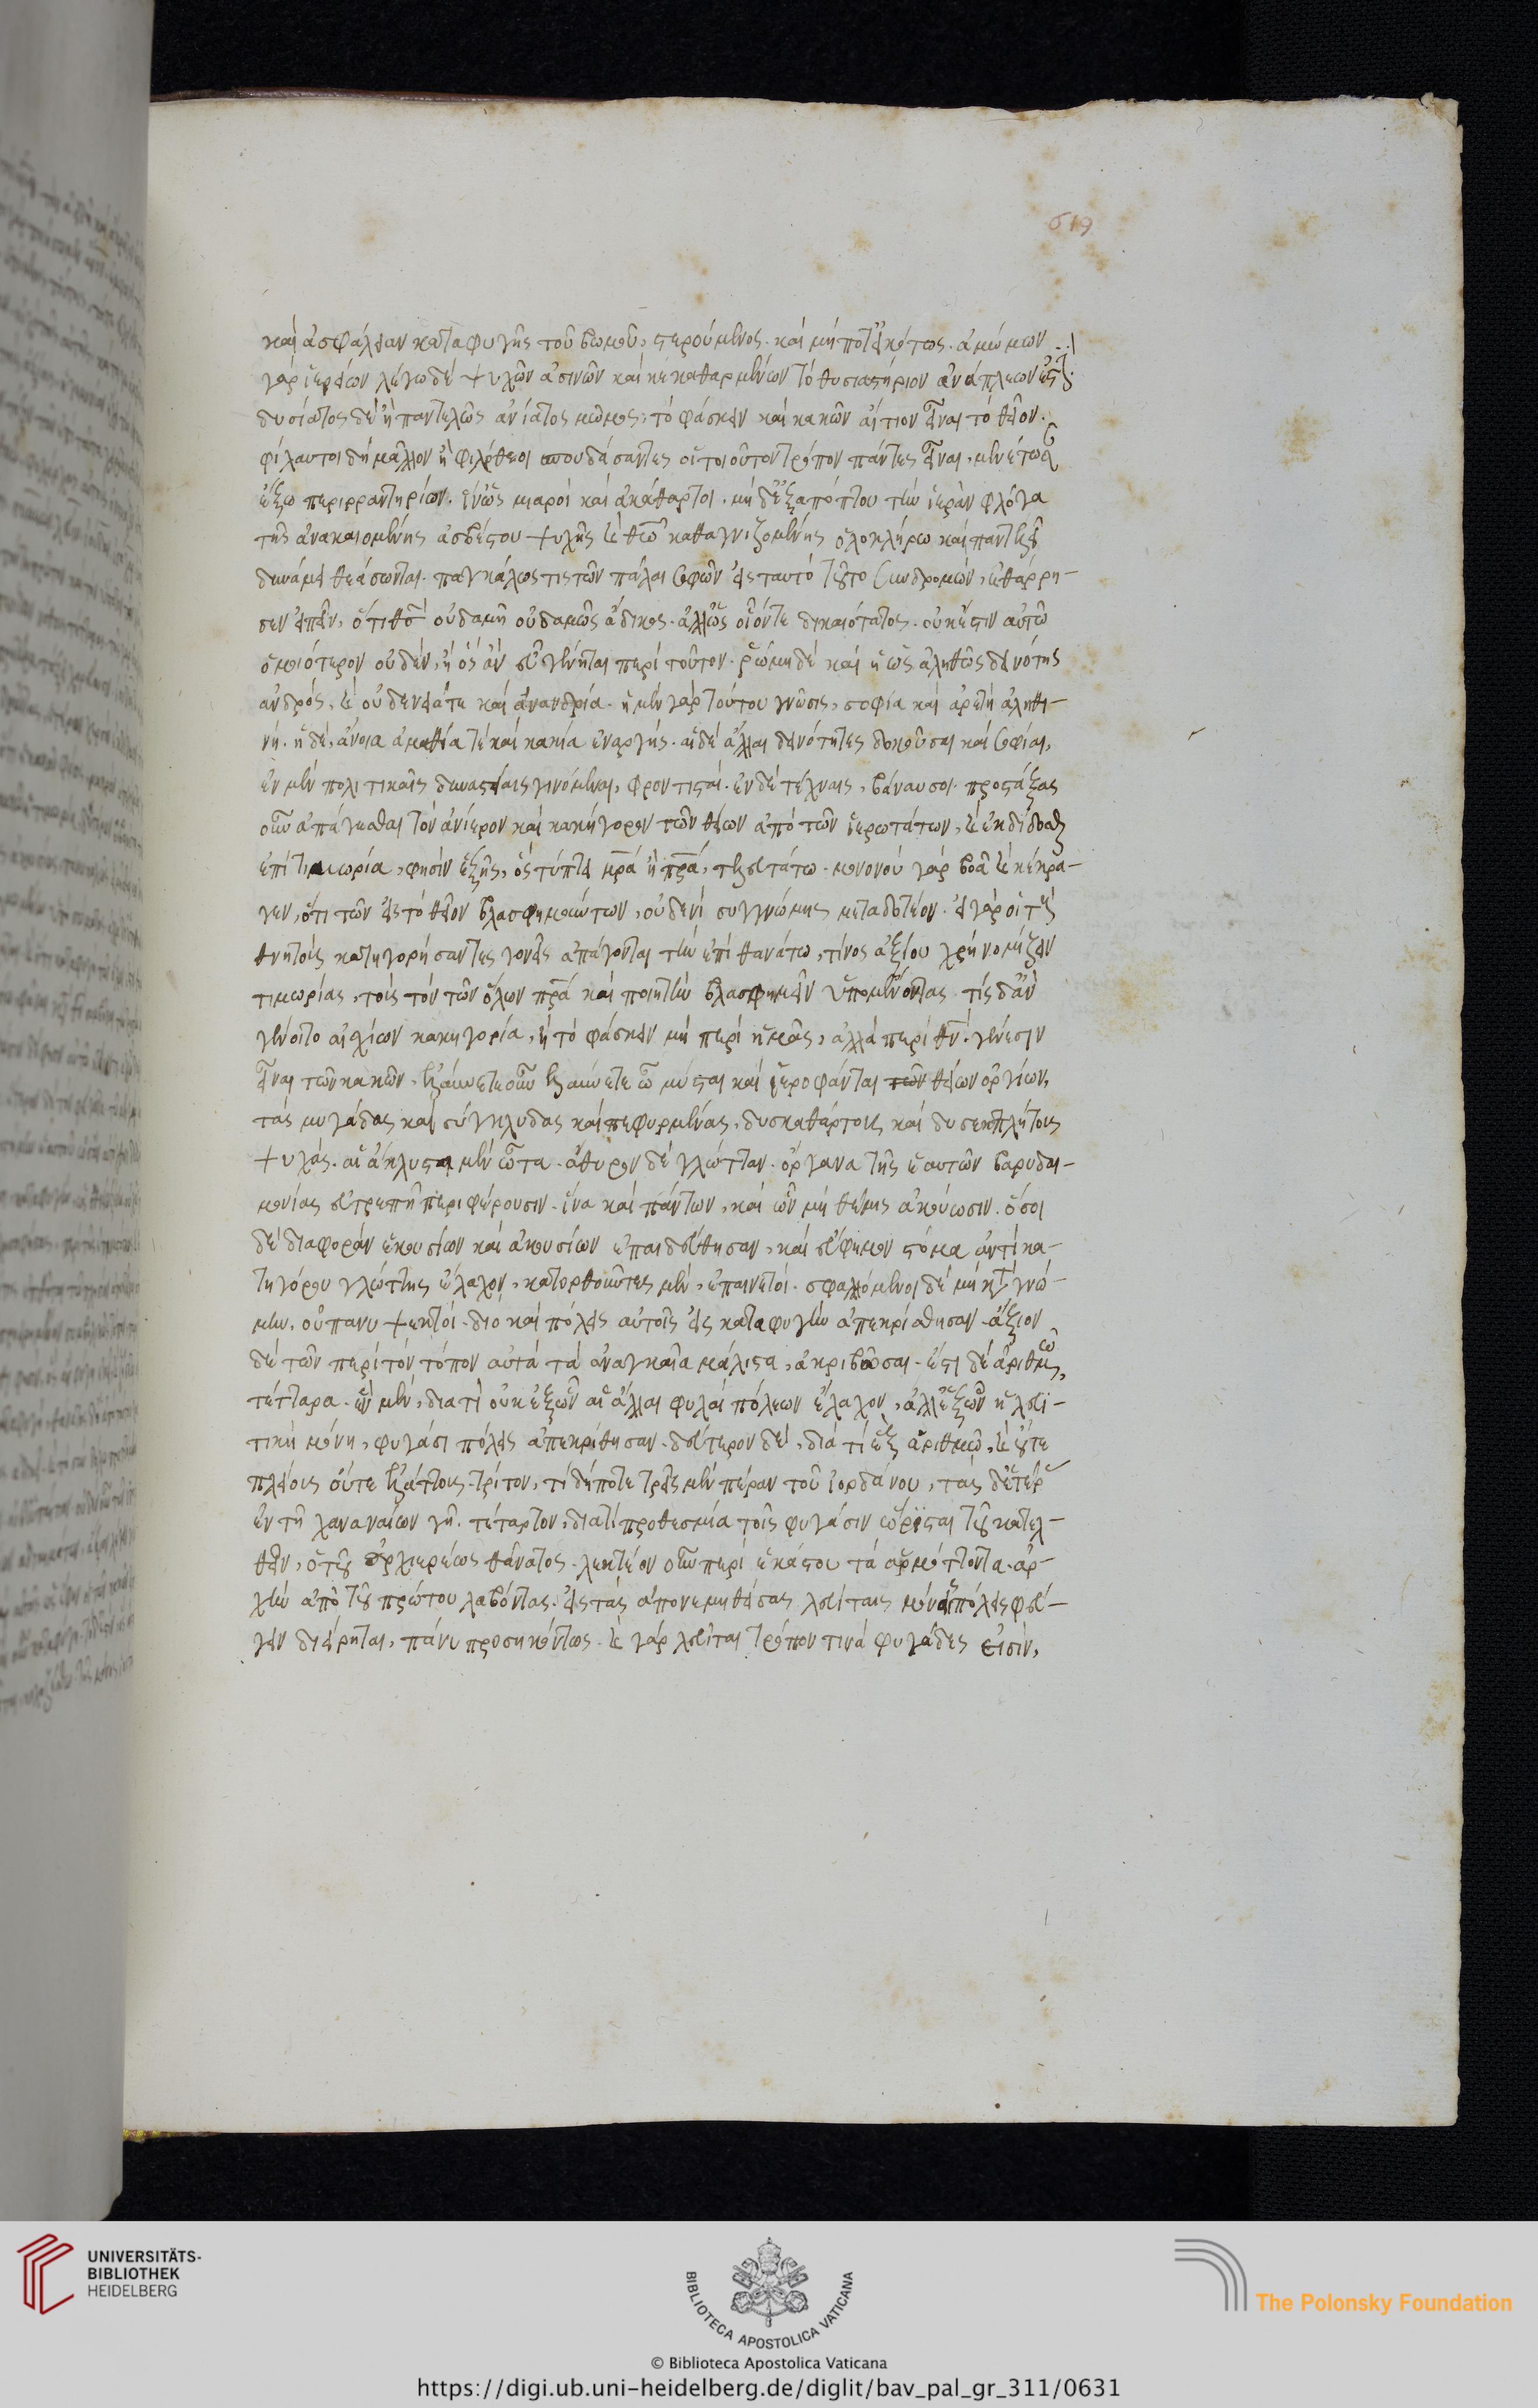 619
καὶ ἀσφάλειαν καταφυγῆς τοῦ βωμοῦ, στερούμενος. καὶ μήποτ' εἰκότως. ἀμώμων
γὰρ ἱερείων λέγω δὲ ψυχῶν ἀσινῶν καὶ κεκαθαρμένων τὸ θυσιαστήριον ἀνάπλεων ἐστὶ.
δυσίατος δὲ ἢ παντελῶς ἀνίατος μῶμος, τὸ φάσκειν καὶ κακῶν αἴτιον εἶναι τὸ θεῖον.
φίλαυτοι δὴ μᾶλλον ἢ φιλόθεοι σπουδάσαντες οἱ τοιοῦτον τρόπον πάντες εἶναι, μενέτωσαν
ἔξω περιρραντηρίων. ἵν' ὡς μιαροὶ καὶ ἀκάθαρτοι. μὴ δ' ἐξαπόπτου τὴν ἱερὰν φλόγα
τῆς ἀνακαιομένης ἀσβέστου ψυχῆς καὶ θεῶ καθαγνιζομένης ὁλοκλήρω καὶ παντελεῖ
δυνάμει θεάσωνται. παγκάλως τις τῶν πάλαι σοφῶν εἰς ταυτὸ τοῦτο συνδρομὼν, ἐθάρρη-
σεν εἰπεῖν, ὅτι θς οὐδαμῆ οὐδαμῶς ἄδικος. ἀλλ' ὡς οἷόντε δικαιότατος. οὐκ ἔστιν αὐτῶ
ὁμοιότερον οὐδὲν, ἢ ὃς ἂν εὖ γένηται περὶ τοῦτον. ῥώμη δὲ καὶ ἡ ὡς ἀληθῶς δεινότης
ἀνδρὸς, καὶ οὐδενεία τε καὶ ἀνανδρία. ἡ μὲν γὰρ τούτου γνῶσις, σοφία καὶ ἀρετὴ ἀληθι-
νή. ἡ δὲ, ἄνοια ἀμαθία τὲ καὶ κακία ἐναργής. αἱ δὲ ἄλλαι δεινότητες δοκοῦσαι καὶ σοφίαι,
ἐν μὲν πολιτικαῖς δυναστείαις γινόμεναι, φροντισταί. ἐν δὲ τέχναις, βάναυσοι. προστάξας
οὖν ἀπάγεσθαι τὸν ἀνίερον καὶ κακήγορον τῶν θείων ἀπὸ τῶν ἱερωτάτων, καὶ ἐκδίδοσθαι
ἐπὶ τιμωρία, φησὶν ἑξῆς, ὃς τύπτει μρα ἢ πρα, τελευτάτω. μονονοὺ γὰρ βοᾶ καὶ κέκρα-
γεν, ὅτι τῶν εἰς τὸ θεῖον βλασφημούντων, οὐδενὶ συγγνώμης μεταδοτέον. εἰ γὰρ οἱ τοὺς
θνητοὺς κατηγορήσαντες γονεῖς ἀπάγονται τὴν ἐπὶ θανάτω, τίνος ἀξίου χρὴ νομίζειν
τιμωρίας, τοὺς τὸν τῶν ὅλων πρα καὶ ποιητὴν βλασφημεῖν ὑπομένοντας. τίς δ' ἂν
γένοιτο αἰσχίων κακηγορία, ἢ τὸ φάσκειν μὴ περὶ ἡμᾶς, ἀλλὰ περὶ θν. γένεσιν
εἶναι τῶν κακῶν. ἐλαύνετε οὖν ἐλαύνετε ὦ μύσται καὶ ἱεροφάνται τῶν θείων ὀργίων,
τὰς μιγάδας καὶ σύγκλυδας καὶ πεφυρμένας, δυσκαθάρτους καὶ δυσεκπλήτους
ψυχάς. αἳ ἄκλυστα μὲν ὦτα. ἄθυρον δὲ γλῶτταν. ὄργανα τῆς ἑαυτῶν βαρυδαι-
μονίας εὐτρεπῆ περιφέρουσιν. ἵνα καὶ πάντων, καὶ ὧν μὴ θέμις ἀκούωσιν. ὅσοι
δὲ διαφορὰν ἑκουσίων καὶ ἀκουσίων ἐπαιδεύθησαν, καὶ εὔφημον στόμα ἀντὶ κα-
τηγόρου γλώττης ἔλαχον, κατορθοῦντες μὲν, ἐπαινετοί. σφαλλόμενοι δὲ μὴ κατὰ γνώ-
μην, οὐ πάνυ ψεκτοί. διὸ καὶ πόλεις αὐτοῖς εἰς καταφυγὴν ἀπεκρίθησαν. ἄξιον
δὲ τῶν περὶ τὸν τόπον αὐτὰ τὰ ἀναγκαῖα μάλιστα, ἀκριβῶσαι. ἔστι δὲ ἀριθμῶ,
τέτταρα. ἓν μὲν, διατὶ οὐκ ἐξ ὧν αἱ ἄλλαι φυλαὶ πόλεων ἔλαχον, ἀλλ' ἐξ ὧν ἡ λευϊ-
τικὴ μόνη, φυγάσι πόλεις ἀπεκρίθησαν. δεύτερον δὲ, διὰ τί ἓξ ἀριθμῶ, καὶ οὔτε
πλείους οὔτε ἐλάττους. τρίτον, τί δήποτε τρεῖς μὲν πέραν τοῦ ἰορδάνου, τὰς δ' ἑτέρας
ἐν τῆ χαναναίων γῆ. τέταρτον, διατί προθεσμία τοῖς φυγάσιν ὥρισται τοῦ κατελ-
θεῖν, ὁ τοῦ ἀρχιερέως θάνατος. λεκτέον οὖν περὶ ἑκάστου τὰ ἁρμόττοντα. ἀρ-
χὴν ἀπὸ τοῦ πρώτου λαβόντας. εἰς τὰς ἀπονεμηθείσας λευίταις μόναις πόλεις φεύ-
γειν διείρηται, πάνυ προσηκόντως. καὶ γὰρ λευῖται τρόπον τινὰ φυγάδες εἰσὶν,
UNIVERSITÄTS-
BIBLIOTHEK
HEIDELBERG
BIBLIOTECA APOSTOLICA VATICANA
© Biblioteca Apostolica Vaticana
The Polonsky Foundation
https://digi.ub.uni-heidelberg.de/diglit/bav_pal_gr_311/0631